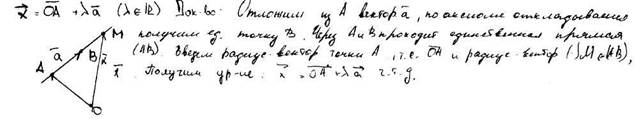 x⃗ = OA⃗ + λa⃗ (λ∈ℝ) Док-во: Отложим из A вектор a⃗, по аксиоме откладывания
получим ед. точку B. Через A и B проходит единственная прямая
(AB). Введем радиус-вектор точки A, т.е. OA⃗ и радиус-вектор (·)M∈(AB),
x⃗. Получим ур-ие: x⃗ = OA⃗ + λa⃗ ч.т.д.
M
B
a⃗
x⃗
A
O